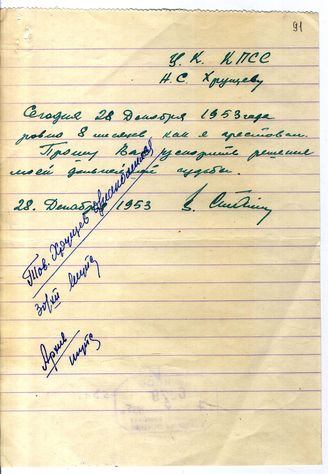 91
Ц К КПСС
Н.С. Хрущеву
Сегодня 28 Декабря 1953 года
ровно 8 месяцев как я арестован.
Прошу Вас ускорить решение
моей дальнейшей судьбы.
28. Декабря 1953 В. Сталин
Тов. Хрущев ознакомлен
30/XII
Архив